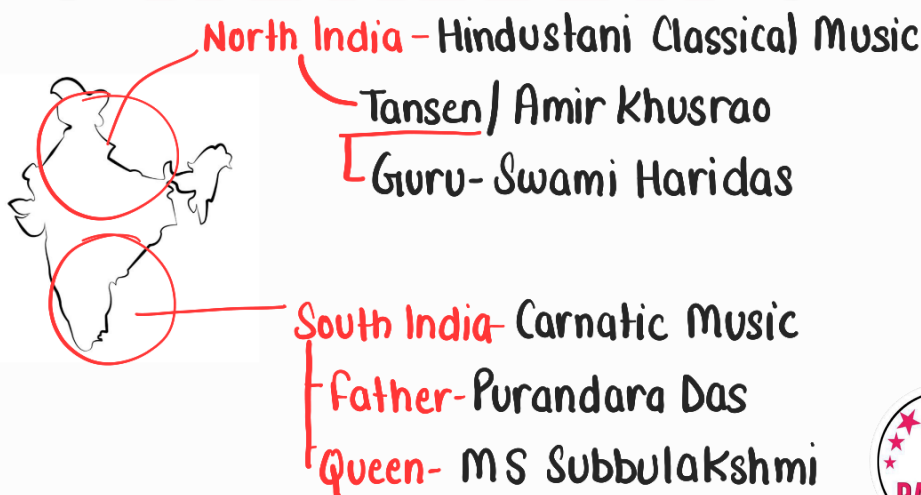 North India - Hindustani Classical Music
Tansen / Amir Khusrao
Guru - Swami Haridas
South India - Carnatic Music
Father - Purandara Das
Queen - MS Subbulakshmi